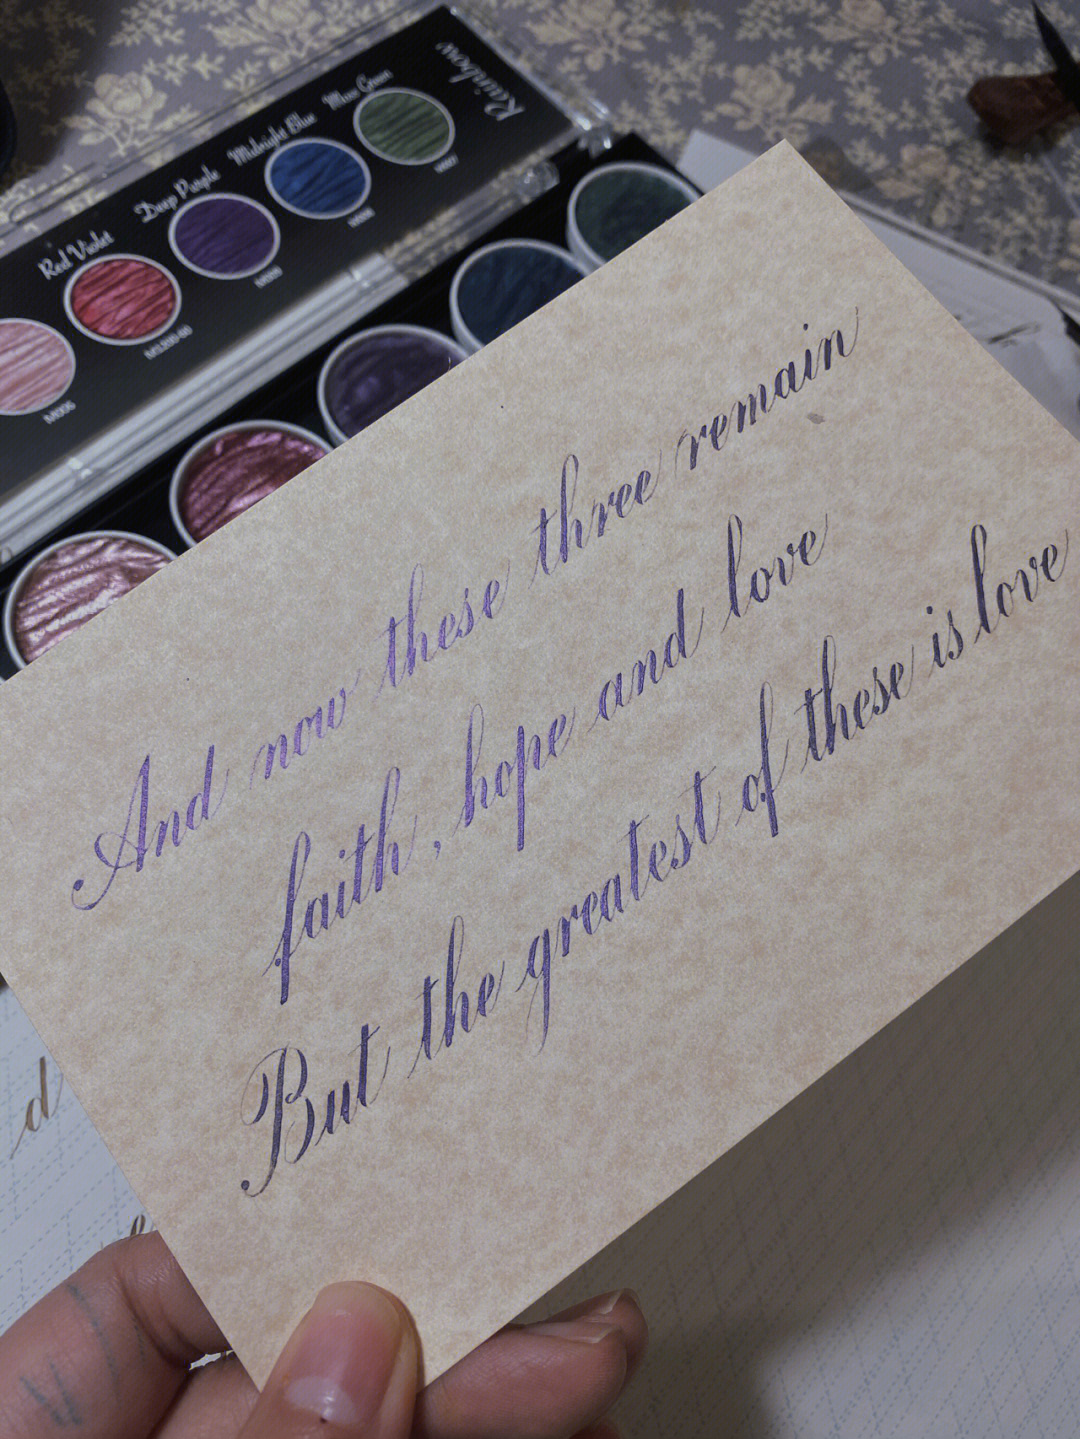 Rainbow
Moss Green
Midnight Blue
Deep Purple
Red Violet
And now these three remain
faith, hope and love
But the greatest of these is love
d
e